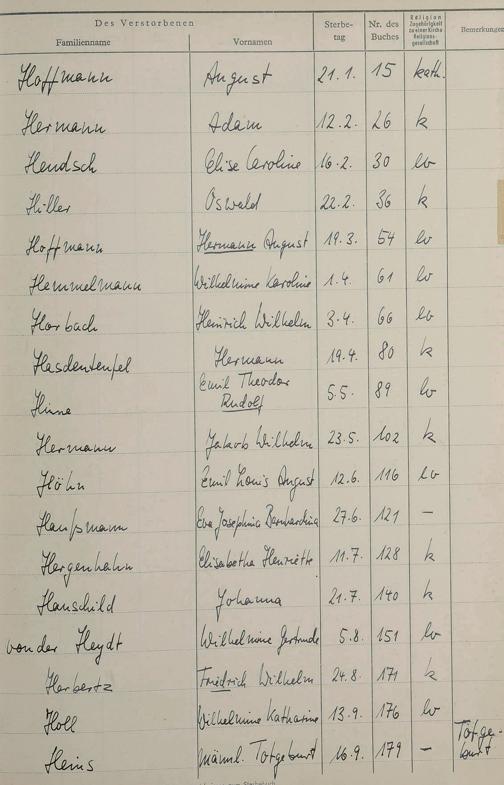 Des Verstorbenen
Familienname Vornamen Sterbe-tag Nr. des Buches Religion Zugehörigkeit zu einer Kirche Religions-gesellschaft Bemerkungen
Hoffmann August 21.1. 15 kath.
Hermann Adam 12.2. 26 k
Hendsch Elise Caroline 16.2. 30 ev
Hiller Oswald 22.2. 36 k
Hoffmann Hermann August 19.3. 54 ev
Hemmelmann Wilhelmine Karoline 1.4. 61 ev
Horbach Heinrich Wilhelm 3.4. 66 ev
Hasdenteufel Hermann 19.4. 80 k
Emil Theodor
Hinne Rudolf 5.5. 89 ev
Hermann Jakob Wilhelm 23.5. 102 k
Höhn Emil Louis August 12.6. 116 ev
Haußmann Eva Josephina Bernhardina 27.6. 121 –
Hergenhahn Elisabetha Henriette 11.7. 128 k
Hanschild Johanna 21.7. 140 k
von der Heydt Wilhelmine Gertrude 5.8. 151 ev
Herbertz Friedrich Wilhelm 24.8. 171 k
Holl Wilhelmine Katharine 13.9. 176 ev
Heins männl. Totgeburt 16.9. 179 – Totge-
burt